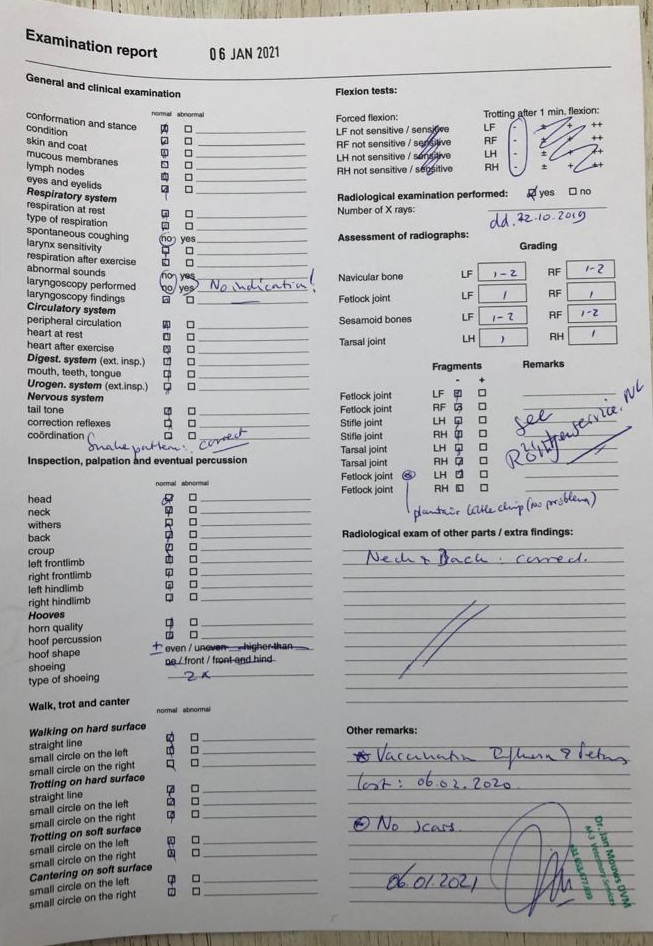 Examination report
06 JAN 2021
General and clinical examination
normal abnormal
conformation and stance
condition
skin and coat
mucous membranes
lymph nodes
eyes and eyelids
Respiratory system
respiration at rest
type of respiration
spontaneous coughing no yes
larynx sensitivity
respiration after exercise
abnormal sounds no yes
laryngoscopy performed no yes No indication!
laryngoscopy findings
Circulatory system
peripheral circulation
heart at rest
heart after exercise
Digest. system (ext. insp.)
mouth, teeth, tongue
Urogen. system (ext.insp.)
Nervous system
tail tone
correction reflexes
coördination Snake pattern: correct
Inspection, palpation and eventual percussion
normal abnormal
head
neck
withers
back
croup
left frontlimb
right frontlimb
left hindlimb
right hindlimb
Hooves
horn quality
hoof percussion
hoof shape ± even / uneven higher than
shoeing no / front / front and hind
type of shoeing 2x
Walk, trot and canter
normal abnormal
Walking on hard surface
straight line
small circle on the left
small circle on the right
Trotting on hard surface
straight line
small circle on the left
small circle on the right
Trotting on soft surface
small circle on the left
small circle on the right
Cantering on soft surface
small circle on the left
small circle on the right
Flexion tests:
Forced flexion: Trotting after 1 min. flexion:
LF not sensitive / sensitive LF - ± + ++
RF not sensitive / sensitive RF - ± + ++
LH not sensitive / sensitive LH - ± + ++
RH not sensitive / sensitive RH - ± + ++
Radiological examination performed: yes no
Number of X rays: dd. 22.10.2019
Assessment of radiographs:
Grading
Navicular bone LF 1-2 RF 1-2
Fetlock joint LF 1 RF 1
Sesamoid bones LF 1-2 RF 1-2
Tarsal joint LH 1 RH 1
Fragments Remarks
- +
Fetlock joint LF
Fetlock joint RF
Stifle joint LH
Stifle joint RH
Tarsal joint LH
Tarsal joint RH
Fetlock joint LH
Fetlock joint RH
see
Röntgenservice.NL
plantair little chip (no problem)
Radiological exam of other parts / extra findings:
Neck & Back: correct.
Other remarks:
Vaccination Influenza & Tetanus
last: 06.02.2020
No scars.
06.01.2021
Dr. Jan Meuws DVM
Veterinary Services